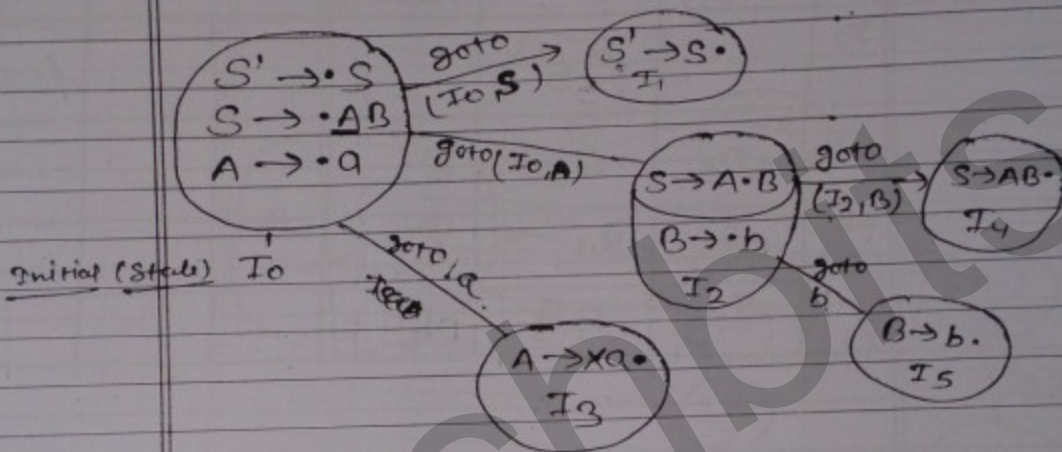 S' → • S
S → • AB
A → • a
goto
(I0, S)
S' → S •
I1
goto (I0, A)
S → A • B
B → • b
I2
goto
(I2, B)
S → AB •
I4
goto, a.
Initial (State) I0
goto
b
B → b .
I5
A → a •
I3